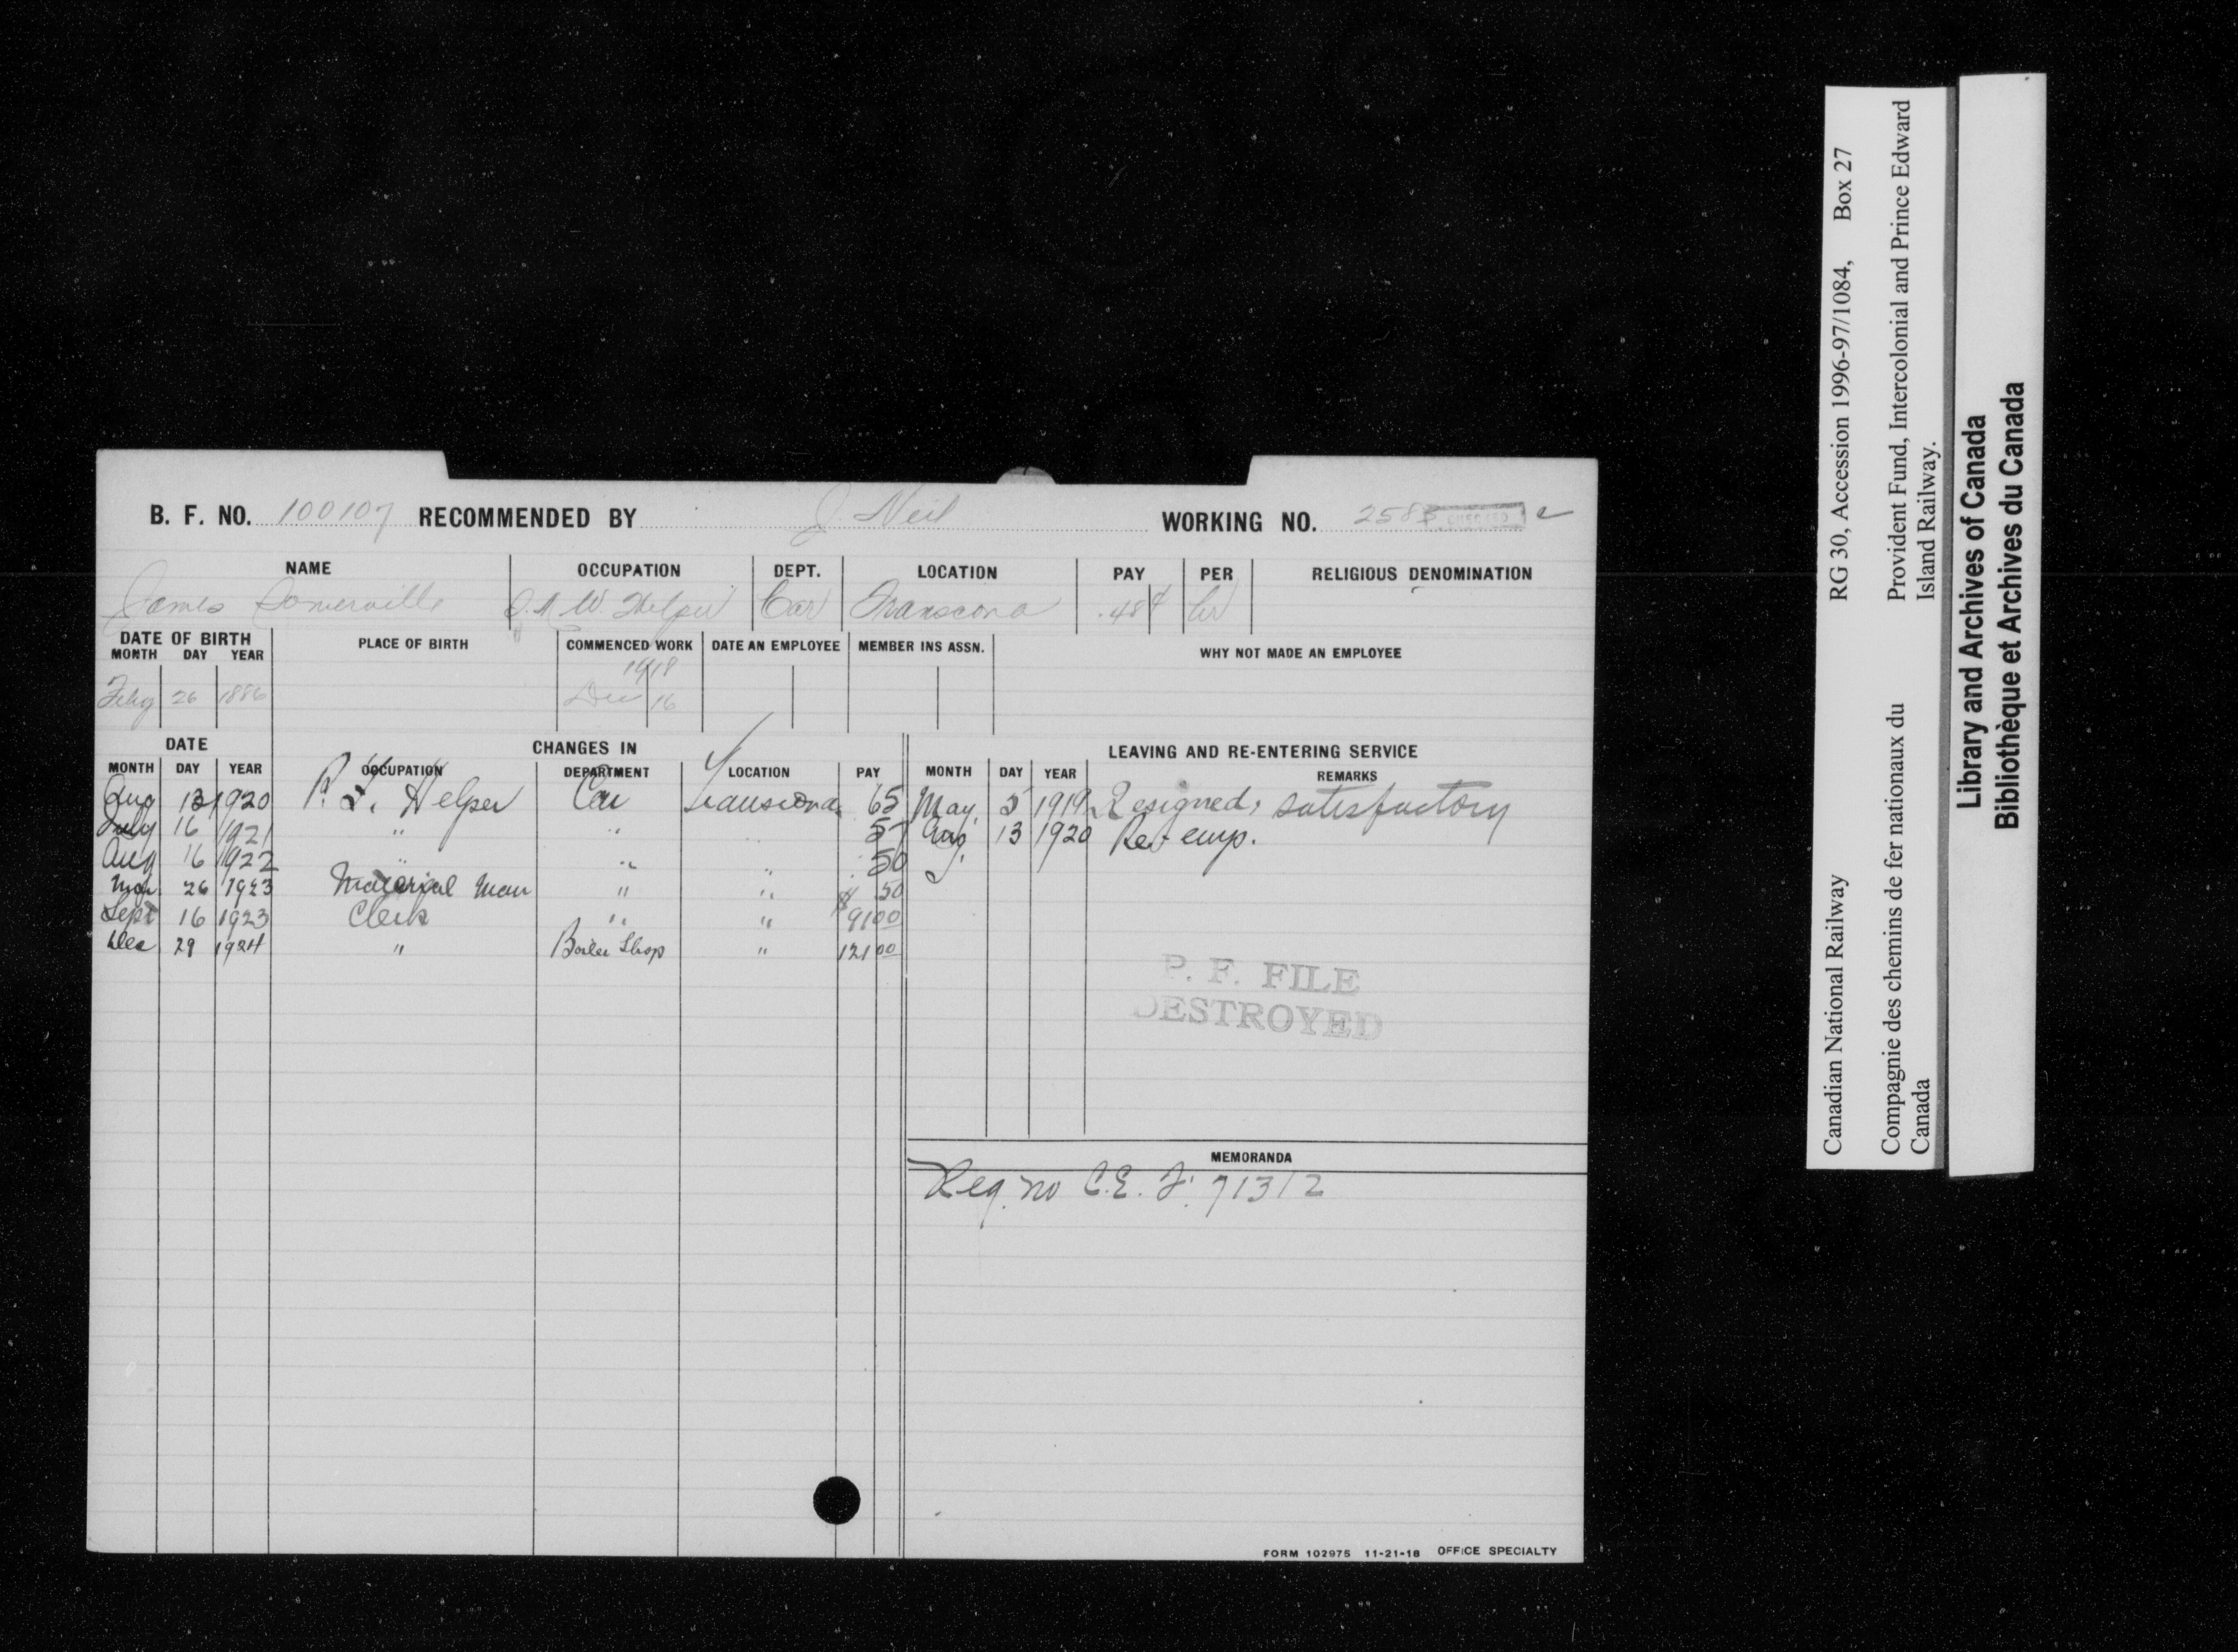 B. F. NO. 100107 RECOMMENDED BY J Neil WORKING NO. 258
NAME OCCUPATION DEPT. LOCATION PAY PER RELIGIOUS DENOMINATION
James Somerville Helper Car Transcona .48¢ hr
DATE OF BIRTH PLACE OF BIRTH COMMENCED WORK DATE AN EMPLOYEE MEMBER INS ASSN. WHY NOT MADE AN EMPLOYEE
MONTH DAY YEAR
1918
Feby 26 1886 Dec 16
DATE CHANGES IN LEAVING AND RE-ENTERING SERVICE
MONTH DAY YEAR OCCUPATION DEPARTMENT LOCATION PAY MONTH DAY YEAR REMARKS
Aug 13 1920 Helper Car Transcona 65 May 5 1919 Resigned, satisfactory
July 16 1921 " " " 57 Aug 13 1920 Re-emp.
Aug 16 1922 " " " 50
Mar 26 1923 Material Man " " 50
Sept 16 1923 Clerk " " $ 91 00
Dec 29 1924 " Boiler Shop " 121 00
P. F. FILE
DESTROYED
MEMORANDA
Reg. no C.E.F. 71312
FORM 102975 11-21-18 OFFICE SPECIALTY
Canadian National Railway RG 30, Accession 1996-97/1084, Box 27
Compagnie des chemins de fer nationaux du Canada
Provident Fund, Intercolonial and Prince Edward Island Railway.
Library and Archives of Canada
Bibliothèque et Archives du Canada